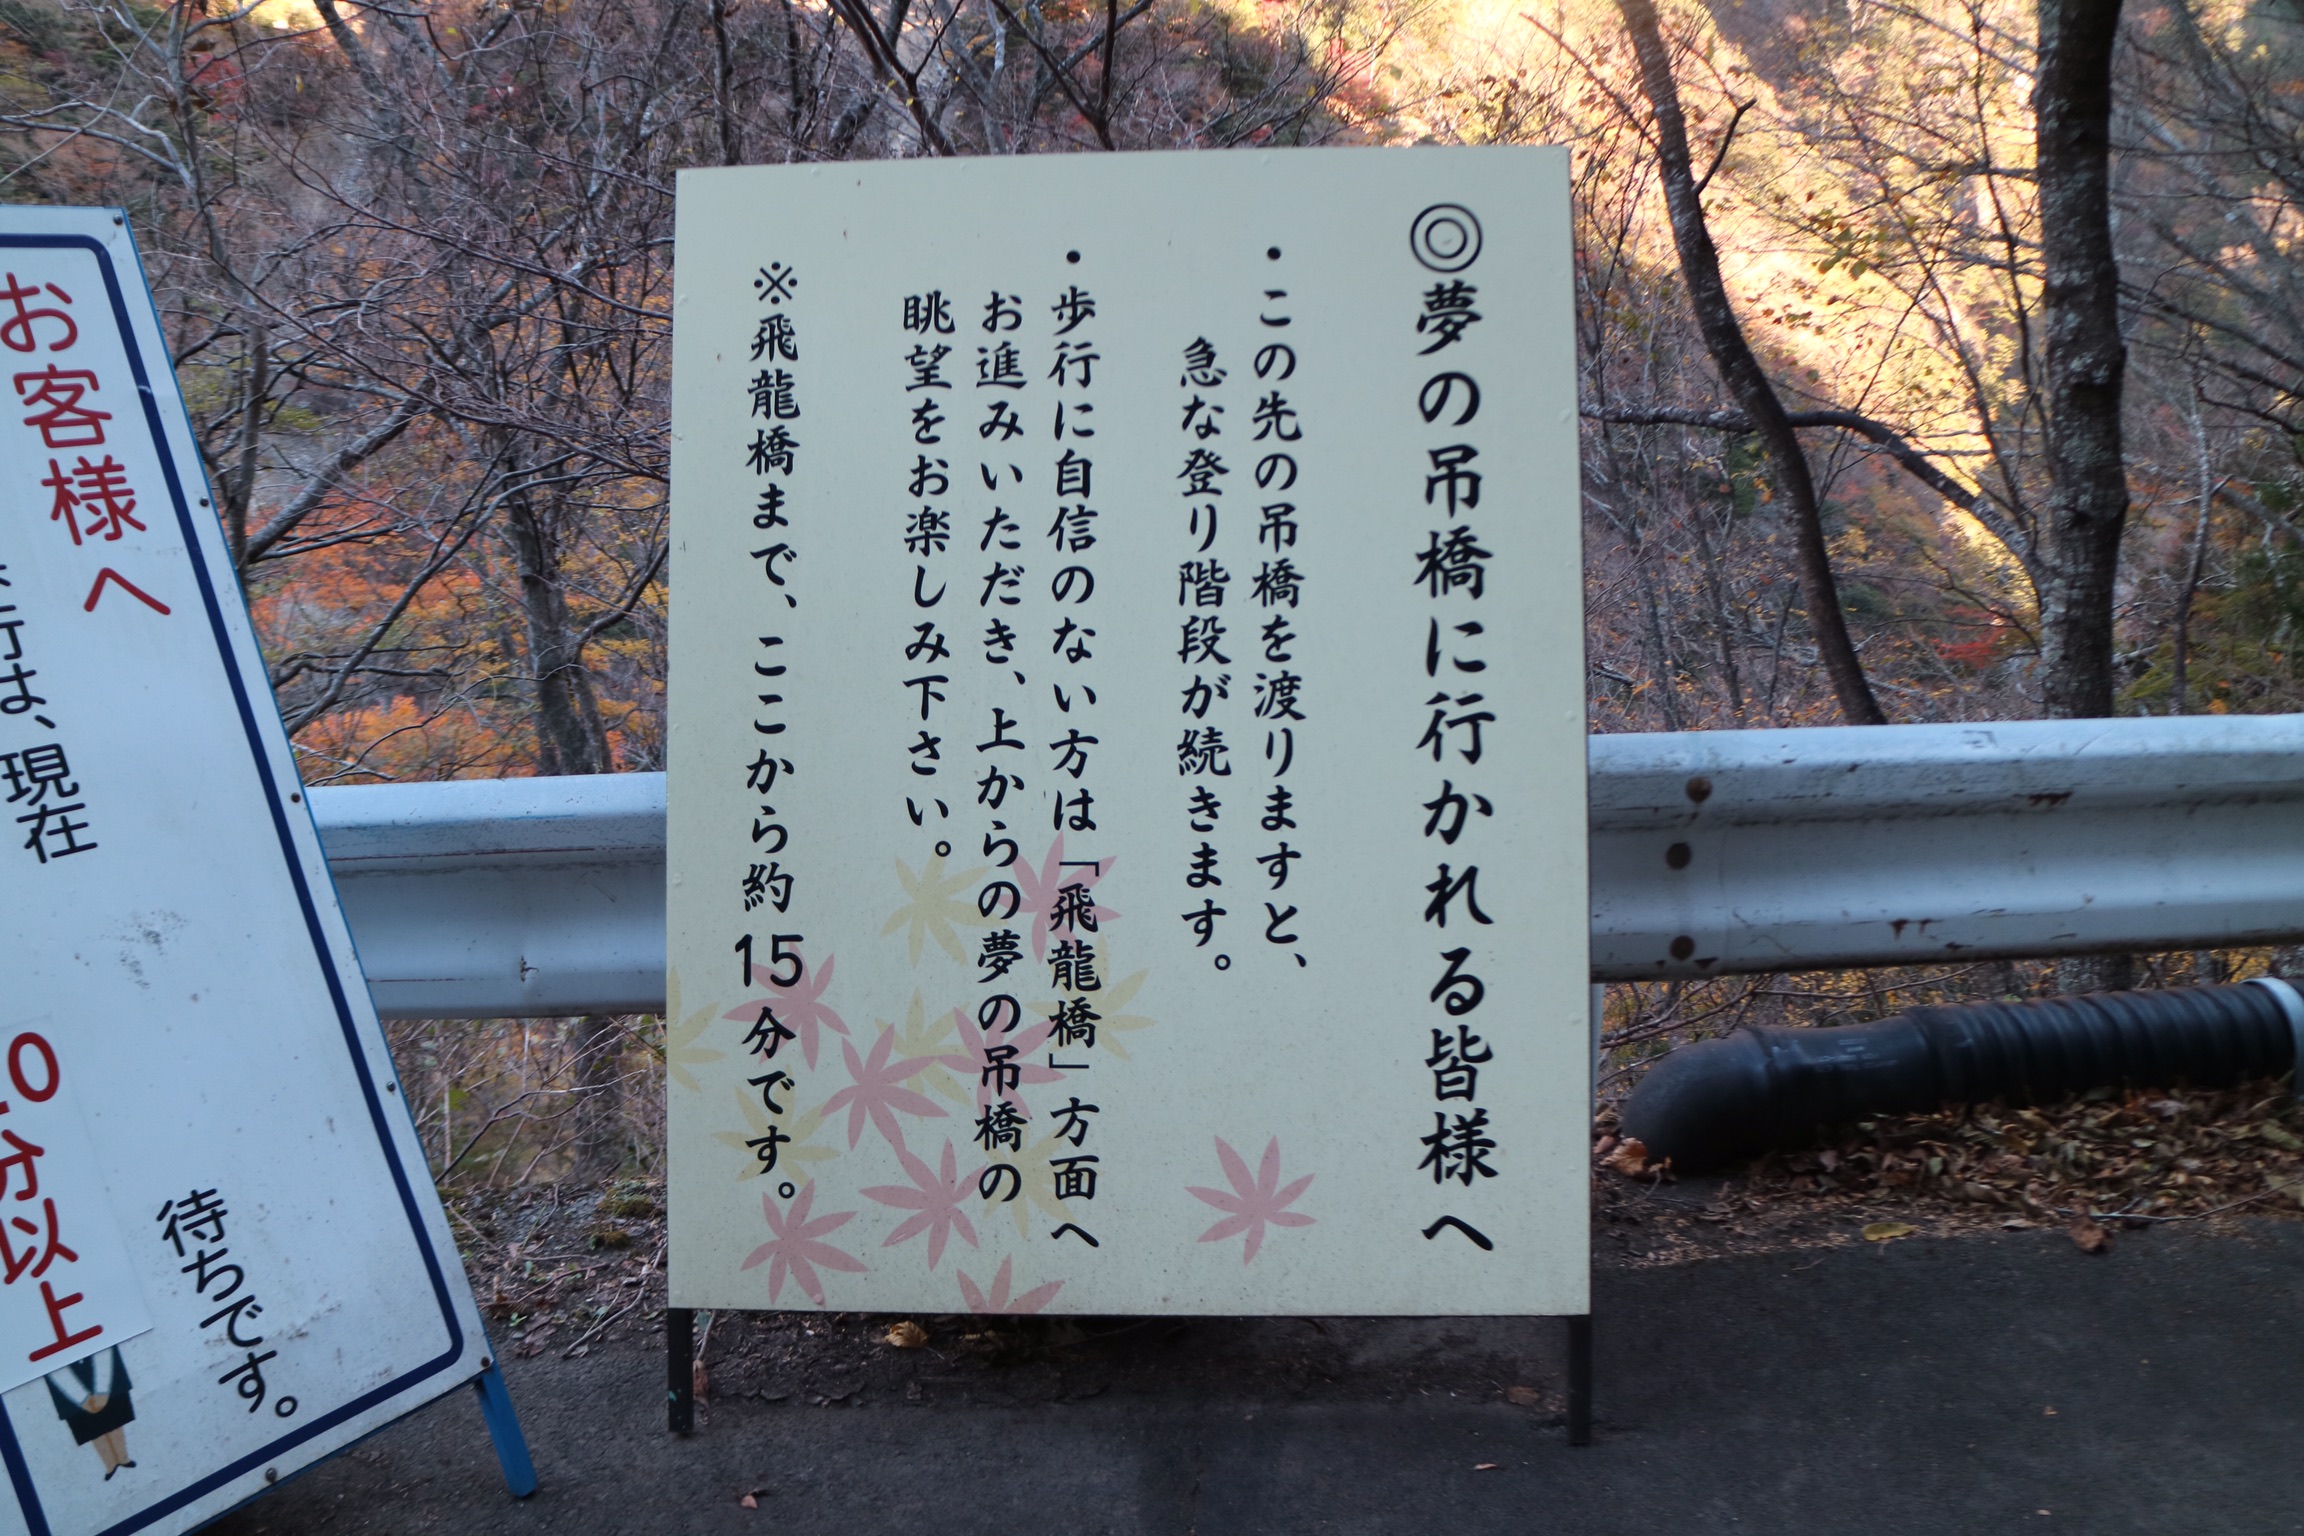 ◎夢の吊橋に行かれる皆様へ
・この先の吊橋を渡りますと、
急な登り階段が続きます。
・歩行に自信のない方は「飛龍橋」方面へ
お進みいただき、上からの夢の吊橋の
眺望をお楽しみ下さい。
※飛龍橋まで、ここから約15分です。
お客様へ
行は、現在
0分以上
待ちです。